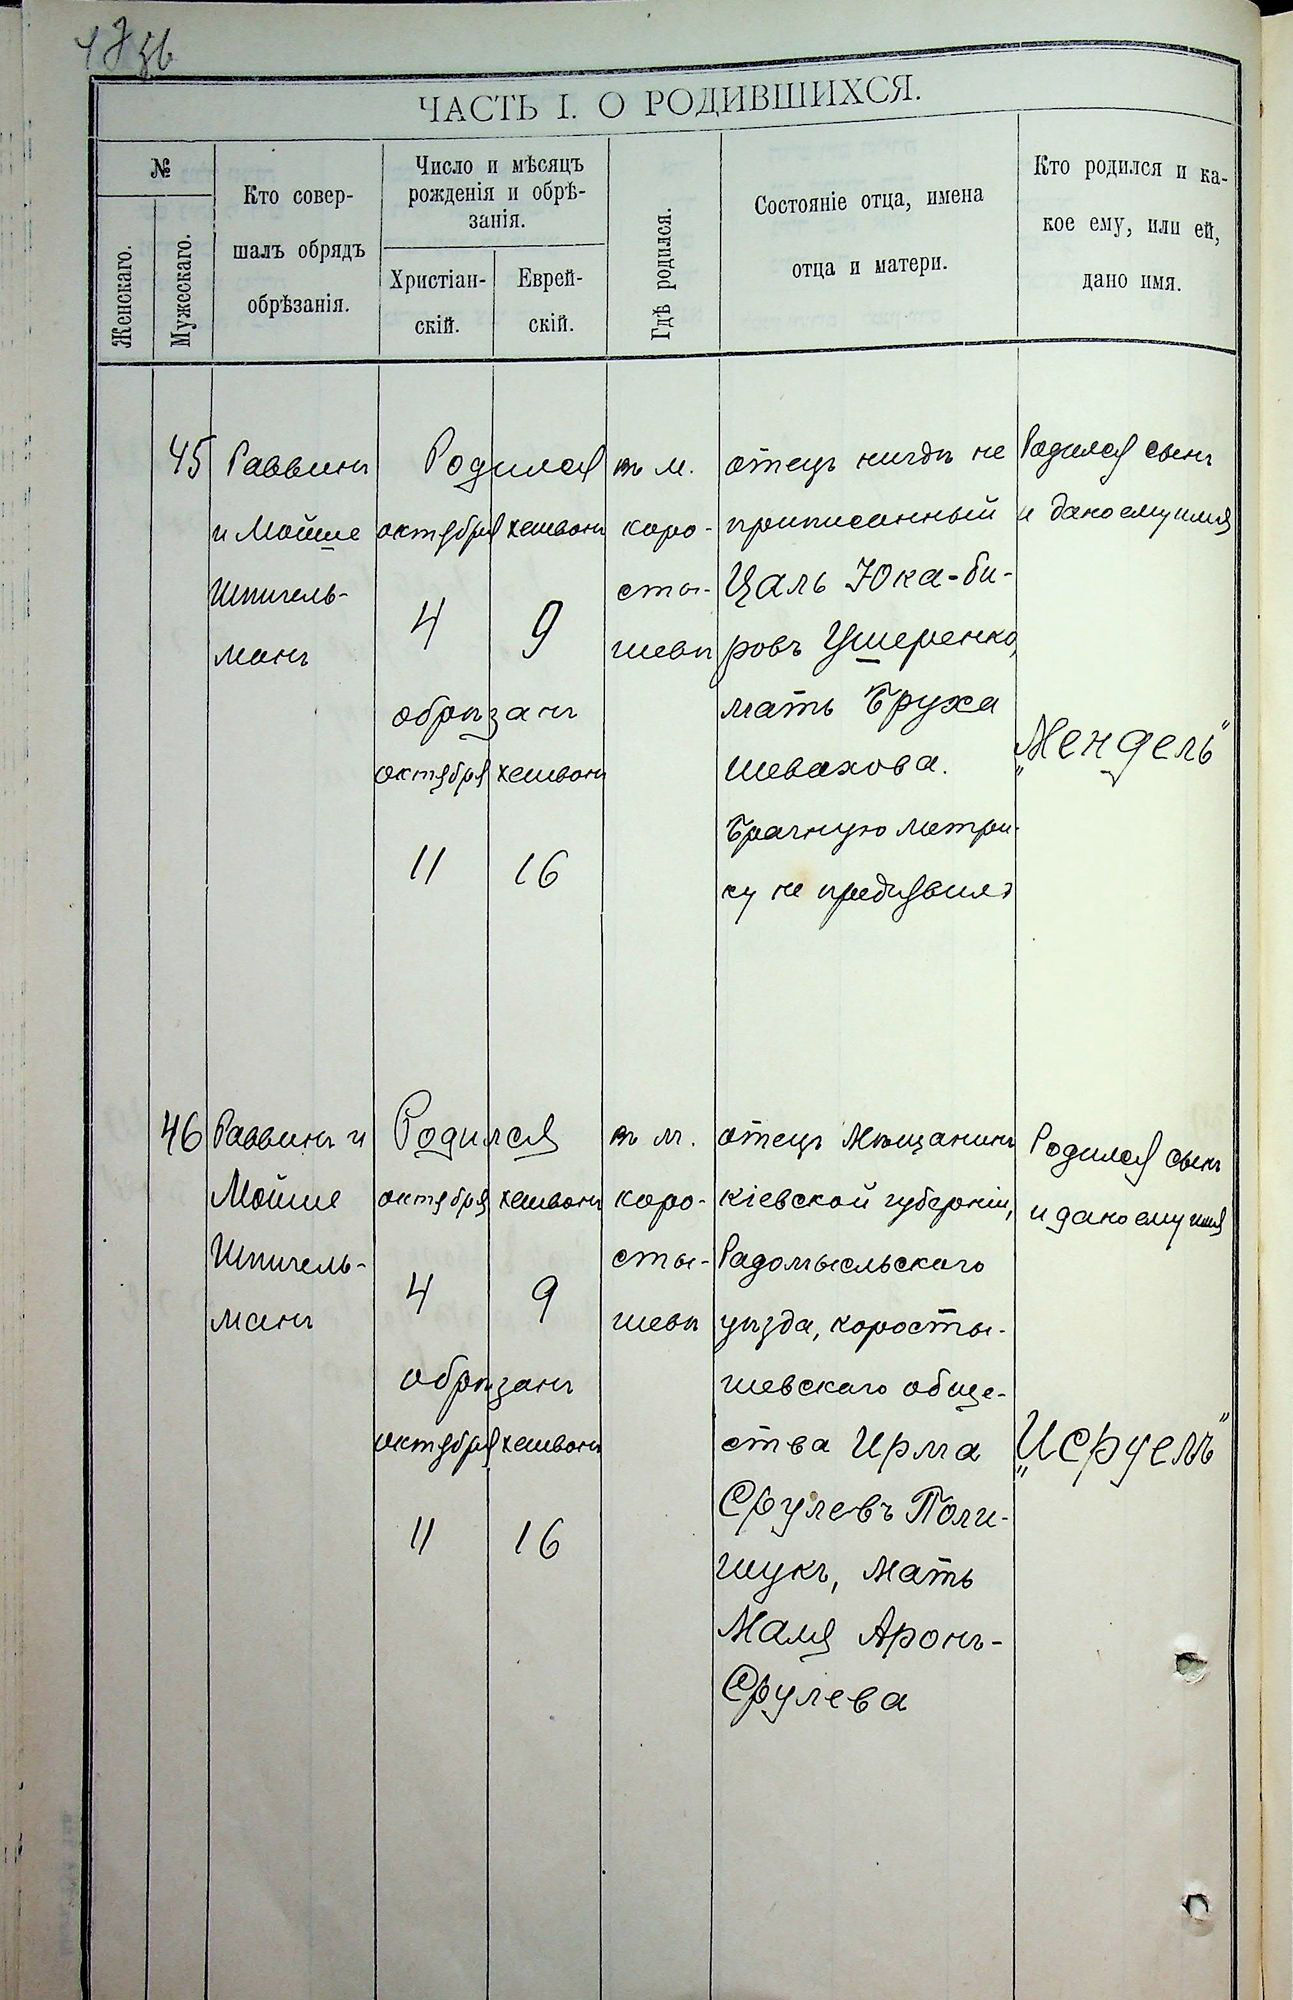 ЧАСТЬ I. О РОДИВШИХСЯ.
№
Женскаго.
Мужескаго.
Кто совер-
шалъ обрядъ
обрѣзанія.
Число и мѣсяцъ
рожденія и обрѣ-
занія.
Христіан-
скій.
Еврей-
скій.
Гдѣ родился.
Состояніе отца, имена
отца и матери.
Кто родился и ка-
кое ему, или ей,
дано имя.
45
Раввинъ
и Мойше
Шпигель-
манъ
Родился
октября хешвонъ
4 9
обрѣзанъ
октября хешвонъ
11 16
въ м.
коро-
сты-
шевѣ
отецъ нигдѣ не
приписанный
Цаль Юка-би-
ровъ Ушеренко,
мать Бруха
Шевахова.
Брачную метри-
ку не предъявилъ
Родился сынъ
и дано ему имя
„Мендель"
46
Раввинъ и
Мойше
Шпигель-
манъ
Родился
октября хешвонъ
4 9
обрѣзанъ
октября хешвонъ
11 16
въ м.
коро-
сты-
шевѣ
отецъ мѣщанинъ
кіевской губерніи,
Радомысльскаго
уѣзда, коросты-
шевскаго обще-
ства Ирма
Срулевъ Поли-
щукъ, мать
Маля Аронъ-
Срулева
Родился сынъ
и дано ему имя
„Исруель"